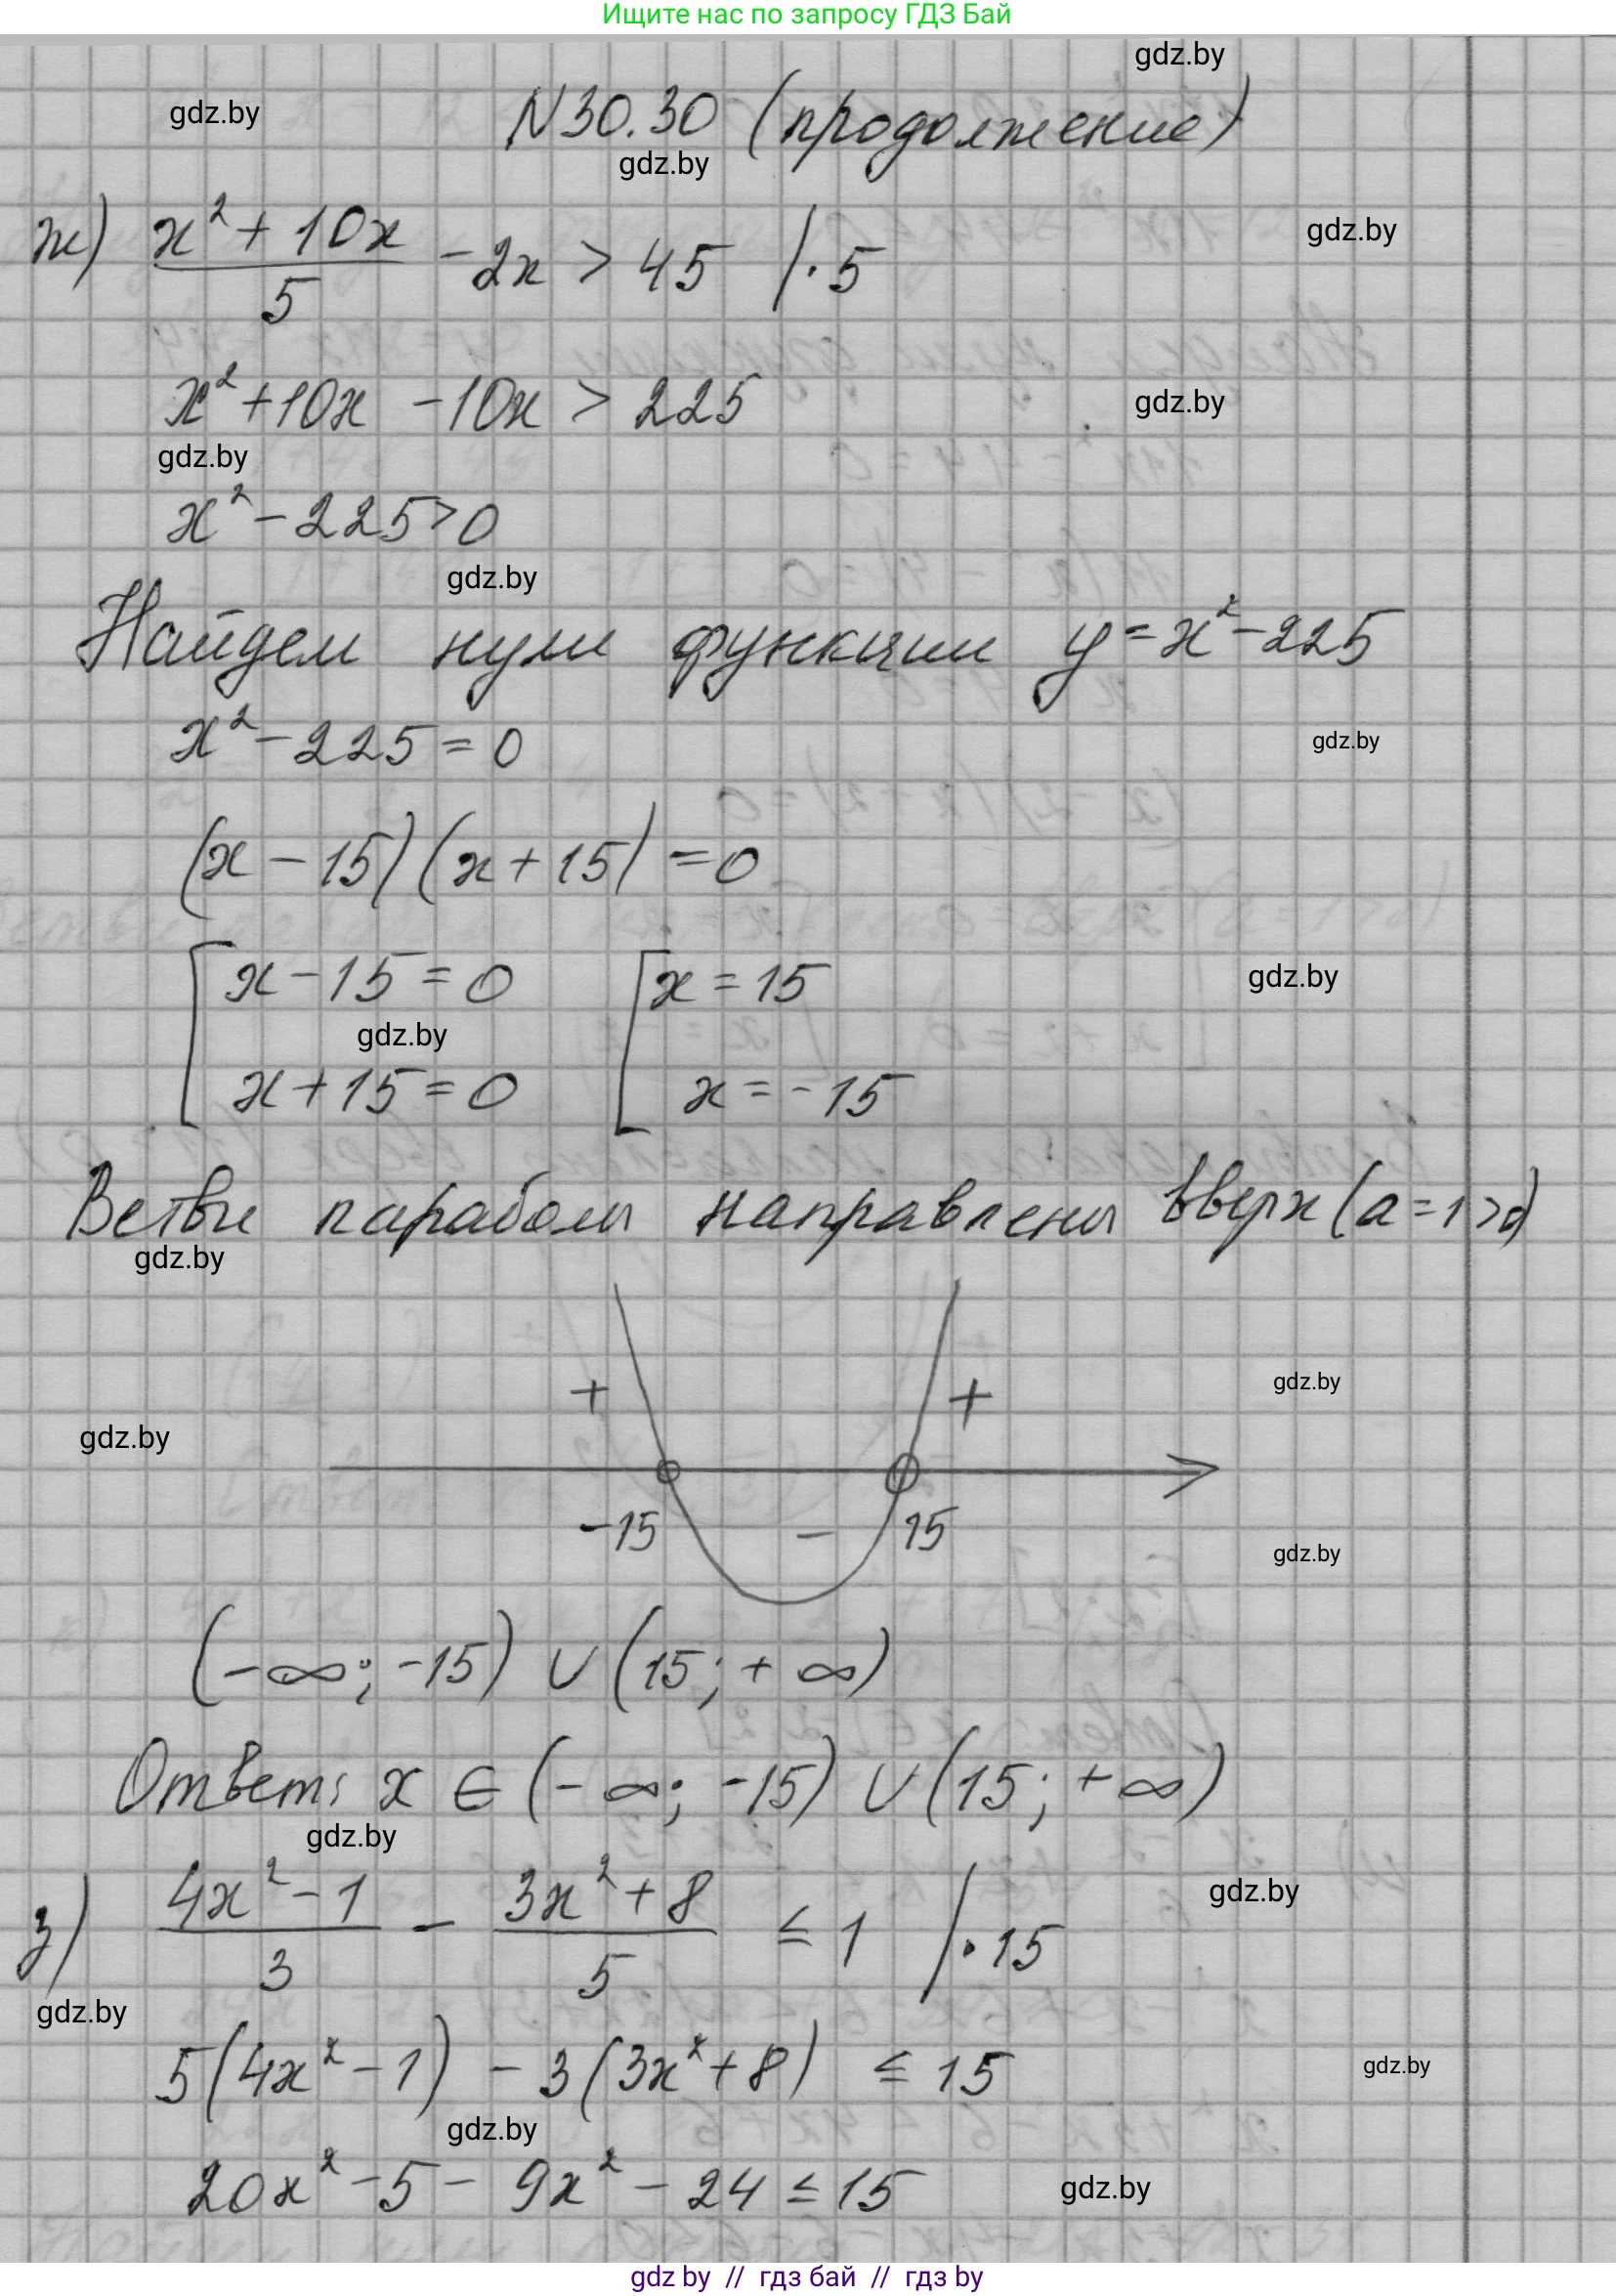 Ищите нас по запросу ГДЗ Бай
gdz.by
gdz.by
N30.30 (продолжение)
gdz.by
ж) (x² + 10x)/5 - 2x > 45 | · 5
gdz.by
x² + 10x - 10x > 225
gdz.by
gdz.by
x² - 225 > 0
gdz.by
Найдем нули функции y = x² - 225
x² - 225 = 0
gdz.by
(x - 15)(x + 15) = 0
[x - 15 = 0 [x = 15
gdz.by
gdz.by
x + 15 = 0 x = -15
Ветви параболы направлены вверх (a = 1 > 0)
gdz.by
gdz.by
+ +
gdz.by
-15 - 15
gdz.by
(-∞; -15) ∪ (15; +∞)
Ответ: x ∈ (-∞; -15) ∪ (15; +∞)
gdz.by
gdz.by
з) (4x² - 1)/3 - (3x² + 8)/5 ≤ 1 | · 15
gdz.by
5(4x² - 1) - 3(3x² + 8) ≤ 15
gdz.by
gdz.by
20x² - 5 - 9x² - 24 ≤ 15
gdz.by
gdz by // гдз бай // гдз by